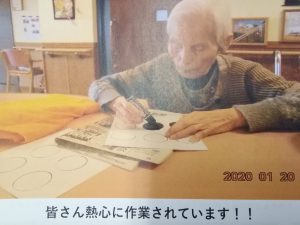 2020 01 20
皆さん熱心に作業されています！！